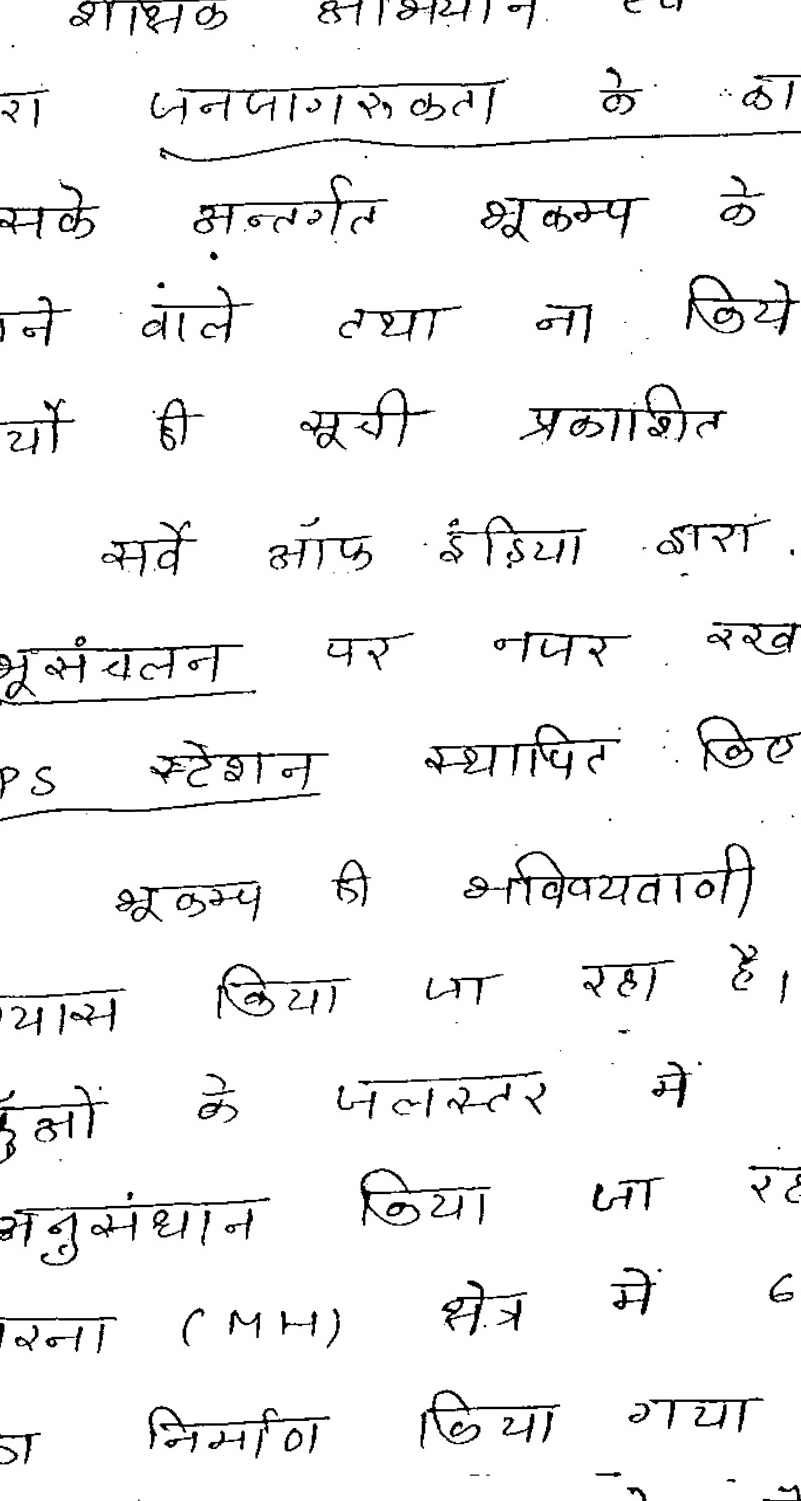 शैक्षिक अभियान
रा जनजागरुकता के का
सके अन्तर्गत भूकम्प के
ने वाले तथा ना किये
र्यो की सूची प्रकाशित
सर्वे ऑफ इंडिया द्वारा
भूसंचलन पर नजर रख
PS स्टेशन स्थापित किए
भूकम्प की भविष्यवाणी
यास किया जा रहा है।
कुओं के जलस्तर में
अनुसंधान किया जा रह
रना (MH) क्षेत्र में 6
का निर्माण किया गया